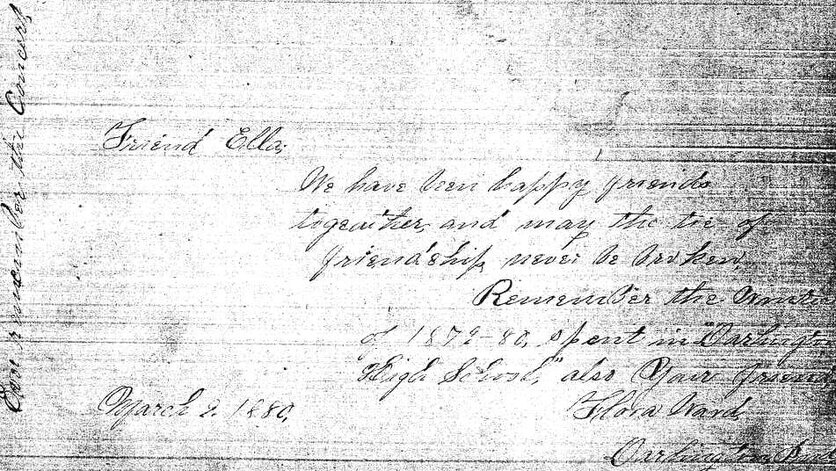 Friend Ella;
We have been happy friends
together, and may the tie of
friendship never be broken.
Remember the
of 1879-80, spent in "Darlington
High School," also Your friend
March 2, 1880,
Flora Ward
Darlington
Ever remember the Concert,